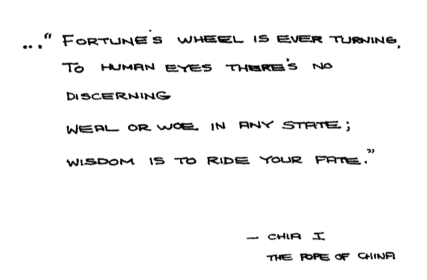 ..." FORTUNE'S WHEEL IS EVER TURNING,
TO HUMAN EYES THERE'S NO
DISCERNING
WEAL OR WOE IN ANY STATE;
WISDOM IS TO RIDE YOUR FATE."
— CHIA I
THE POPE OF CHINA